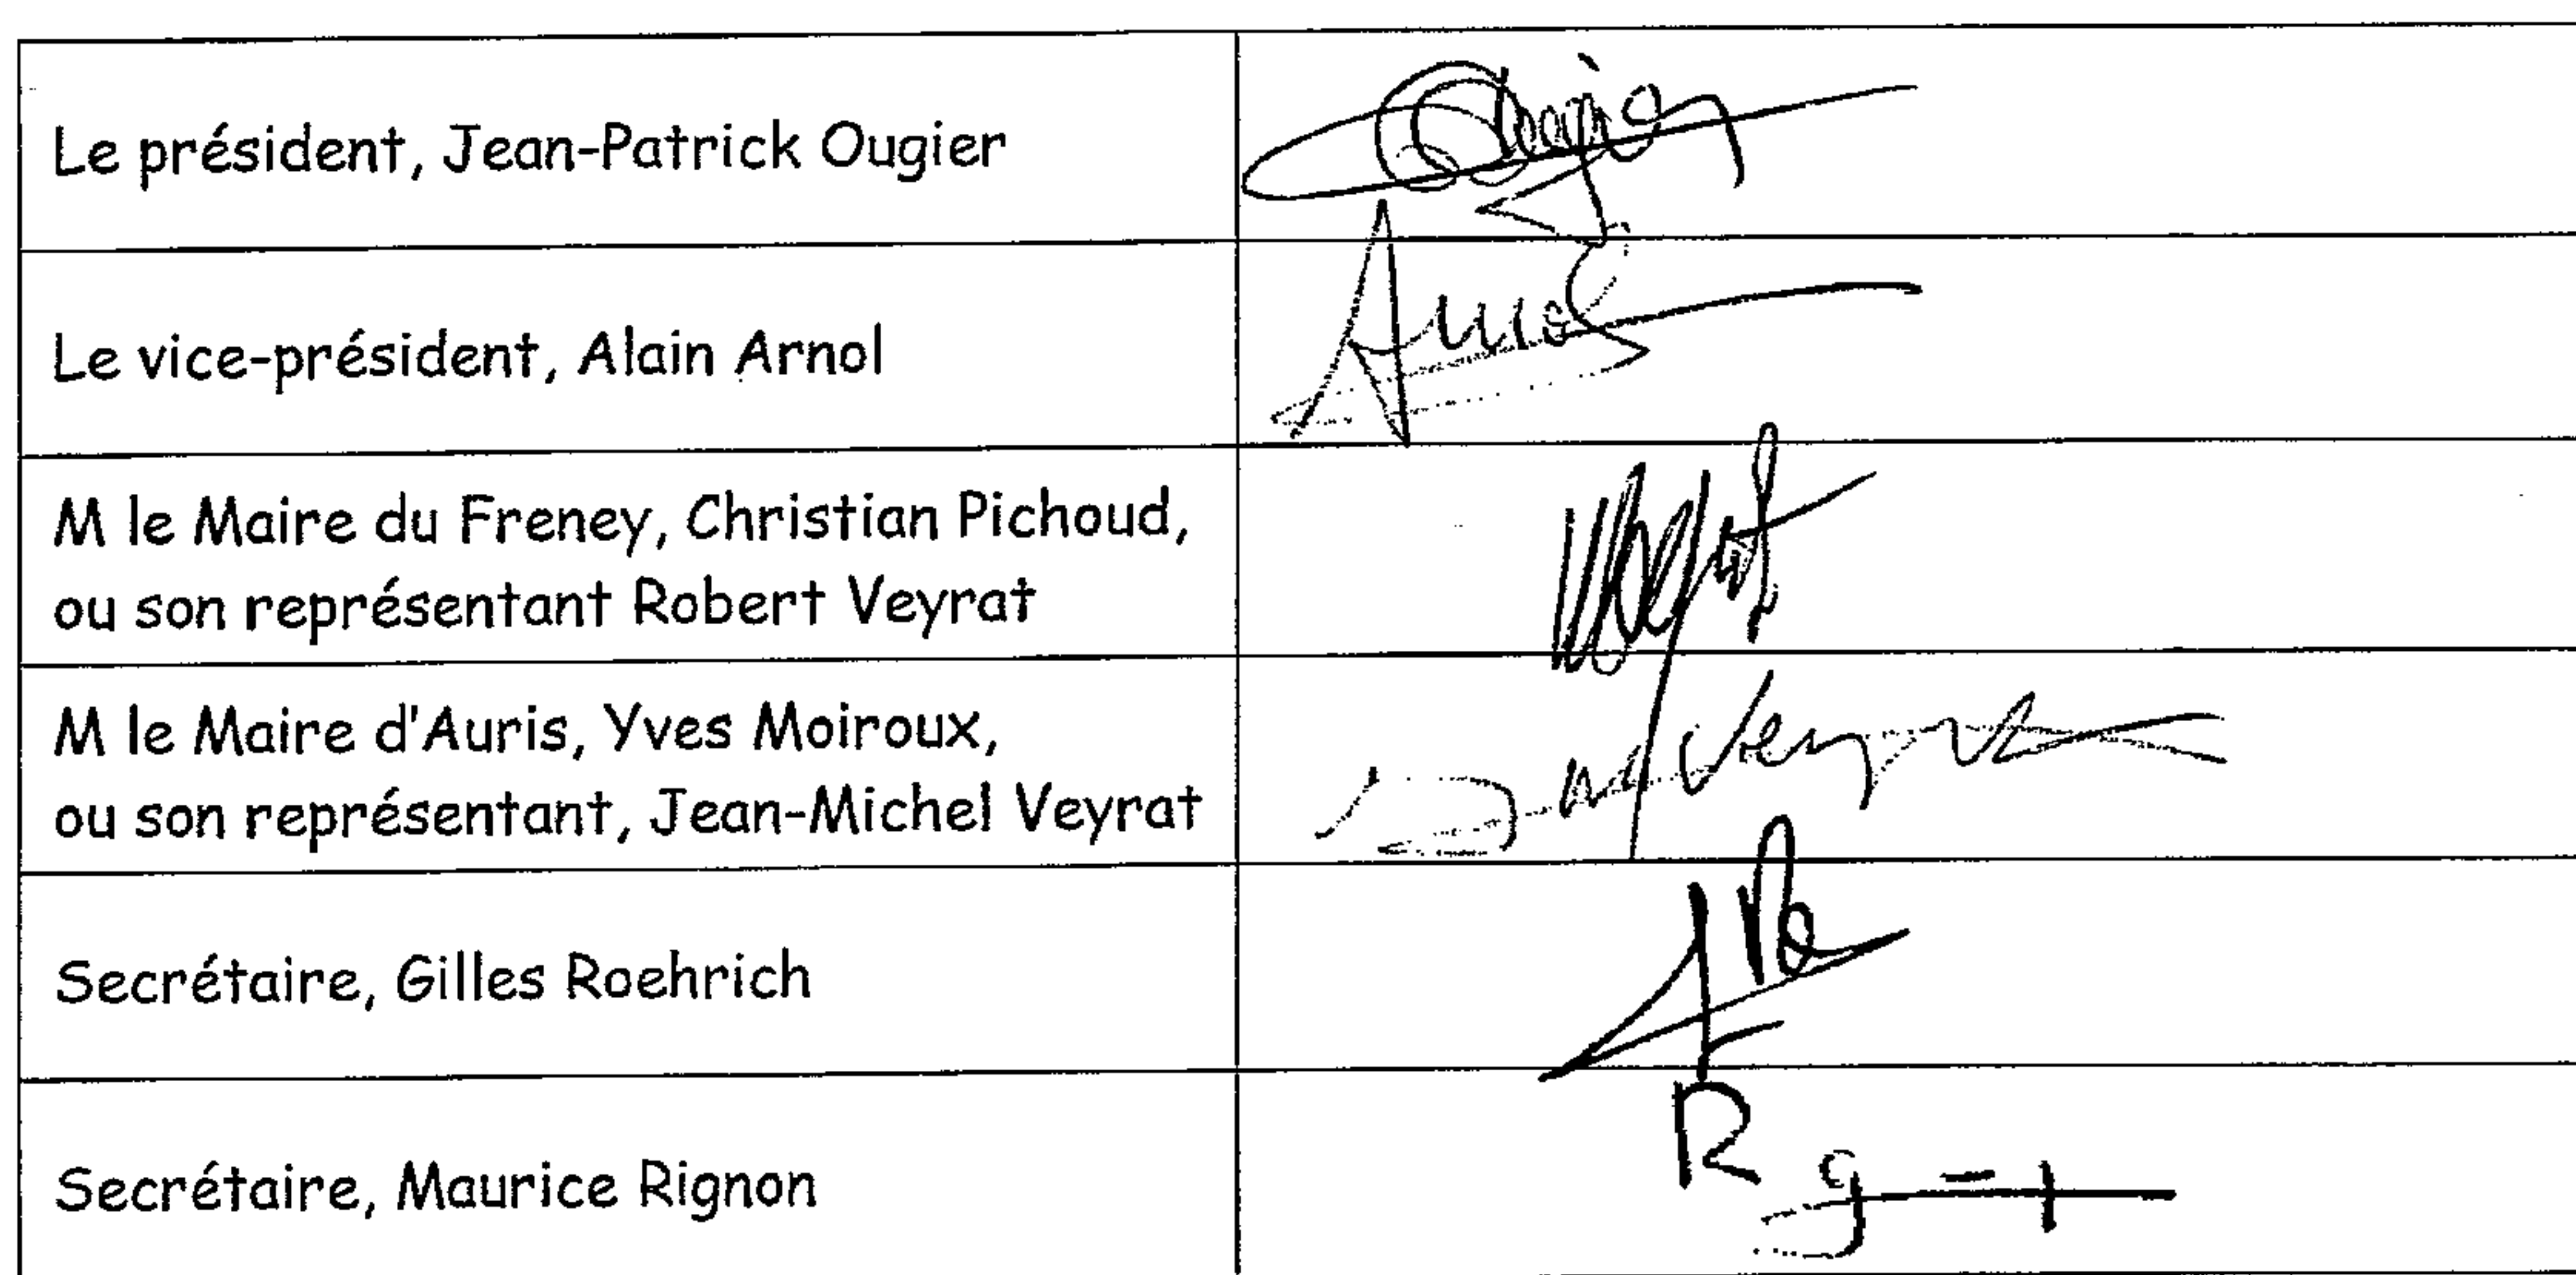 Le président, Jean-Patrick Ougier
Ougier
Le vice-président, Alain Arnol
Arnol
M le Maire du Freney, Christian Pichoud,
ou son représentant Robert Veyrat
M le Maire d'Auris, Yves Moiroux,
ou son représentant, Jean-Michel Veyrat
Veyrat
Secrétaire, Gilles Roehrich
Secrétaire, Maurice Rignon